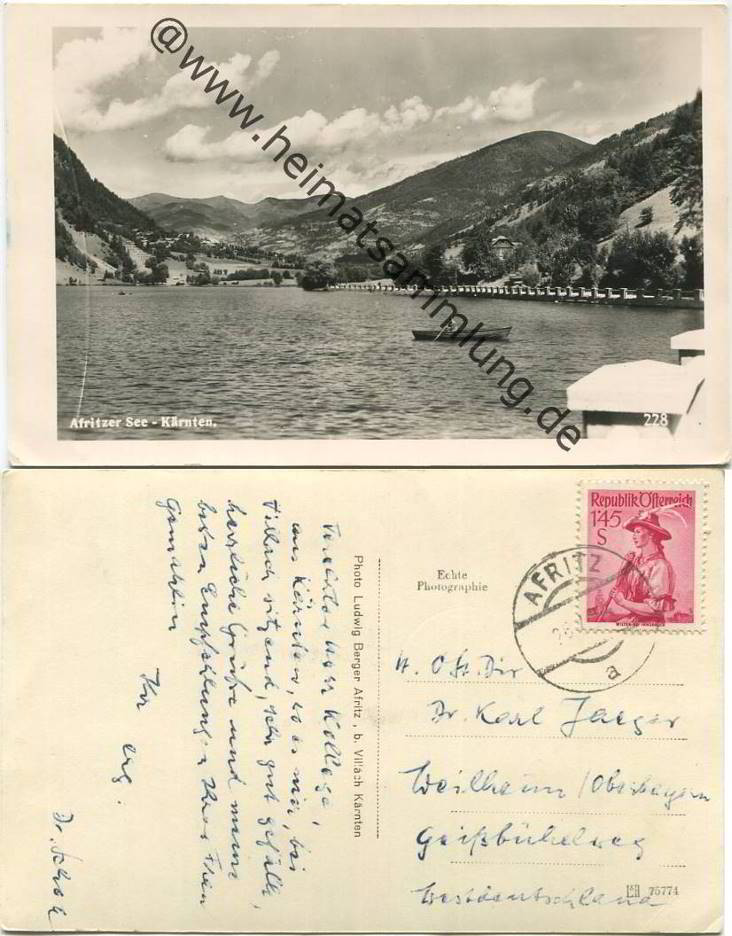 @www.heimatsammlung.de
Afritzer See - Kärnten.
228
Republik Österreich
1'45
S
AFRITZ
a
Echte
Photographie
Photo Ludwig Berger Afritz, b. Villach Kärnten
Herr Kollege,
aus Kärnten, wo es mir, bei
Villach sitzend, sehr gut gefällt,
herzliche Grüße und meine
besten Empfehlungen Ihrer Frau
Gemahlin
Ihr erg.
Dr.
Dr. Karl Jaeger
Weilheim/Oberbayern
Geißbühelweg
Westdeutschland
75774